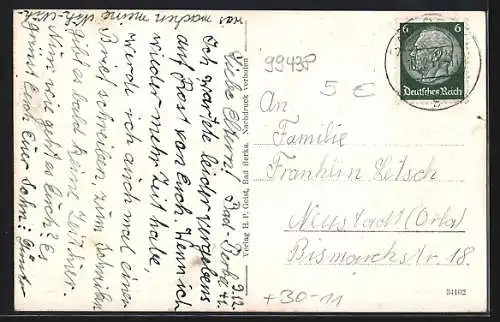 was machen meine
Liebe Eltern! Bad Berka 9.12.41.
Ich wartete leider vergebens
auf Post von Euch. Wenn ich
wieder mehr Zeit habe,
werde ich auch mal einen
Brief schreiben, zum Schreiben
gibt es bald keine Zeit hier.
Nun wie geht es Euch? Es
grüsst Euch Euer Sohn: Günter
Verlag H. P. Geist, Bad Berka. Nachdruck verboten
99438P
5 €
An
Familie
Franklin Letsch
Neustadt (Orla)
Bismarckstr. 18.
+30-11
34102
6 6
Deutsches Reich